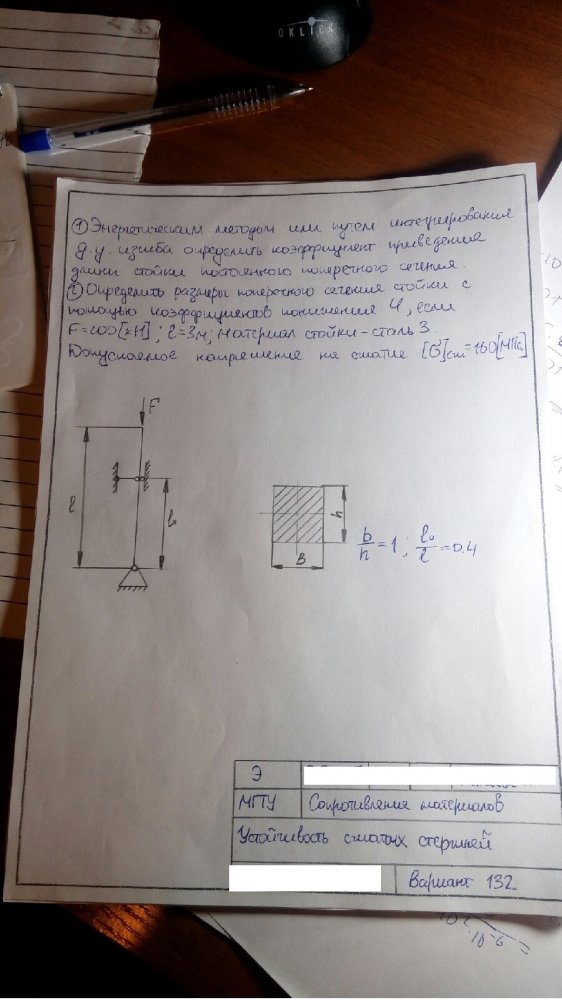 OKLICK
① Энергетическим методом или путем интегрирования
д.у. изгиба определить коэффициент приведения
длины стойки постоянного поперечного сечения.
② Определить размеры поперечного сечения стойки с
помощью коэффициентов понижения φ, если
F=200[кН]; l=3м; материал стойки-сталь 3.
Допускаемое напряжение на сжатие [σ]сж=160[МПа]
F
l
l₀
h
B
b/h=1; l₀/l=0.4
Э
МГТУ Сопротивление материалов
Устойчивость сжатых стержней
Вариант 132